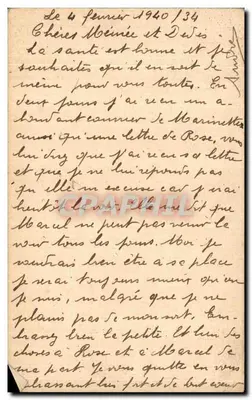 Le 4 fevrier 1940 /34
Chères Mémée et Dédée
La santé est bonne et je
souhaites qu'il en soit de
même pour vous toutes. En
deux jours j'ai reçu un a-
bondant courrier de Marinettes
aussi qu'une lettre de Rose, vous
lui direz que j'ai reçu sa lettre
et que je ne lui réponds pas
qu'elle m'excuse car j'ai
Marcel ne peut pas venir la
voir tous les jours. Moi je
voudrais bien être a sa place
je serai toujours mieux qu'ou
je suis, malgré que je ne
plains pas de mon sort. Em-
brassez bien la petite. Et bien des
choses a Rose et a Marcel de
ma part. Je vous quitte en vous
embrassant bien fort et de tout cœur
André